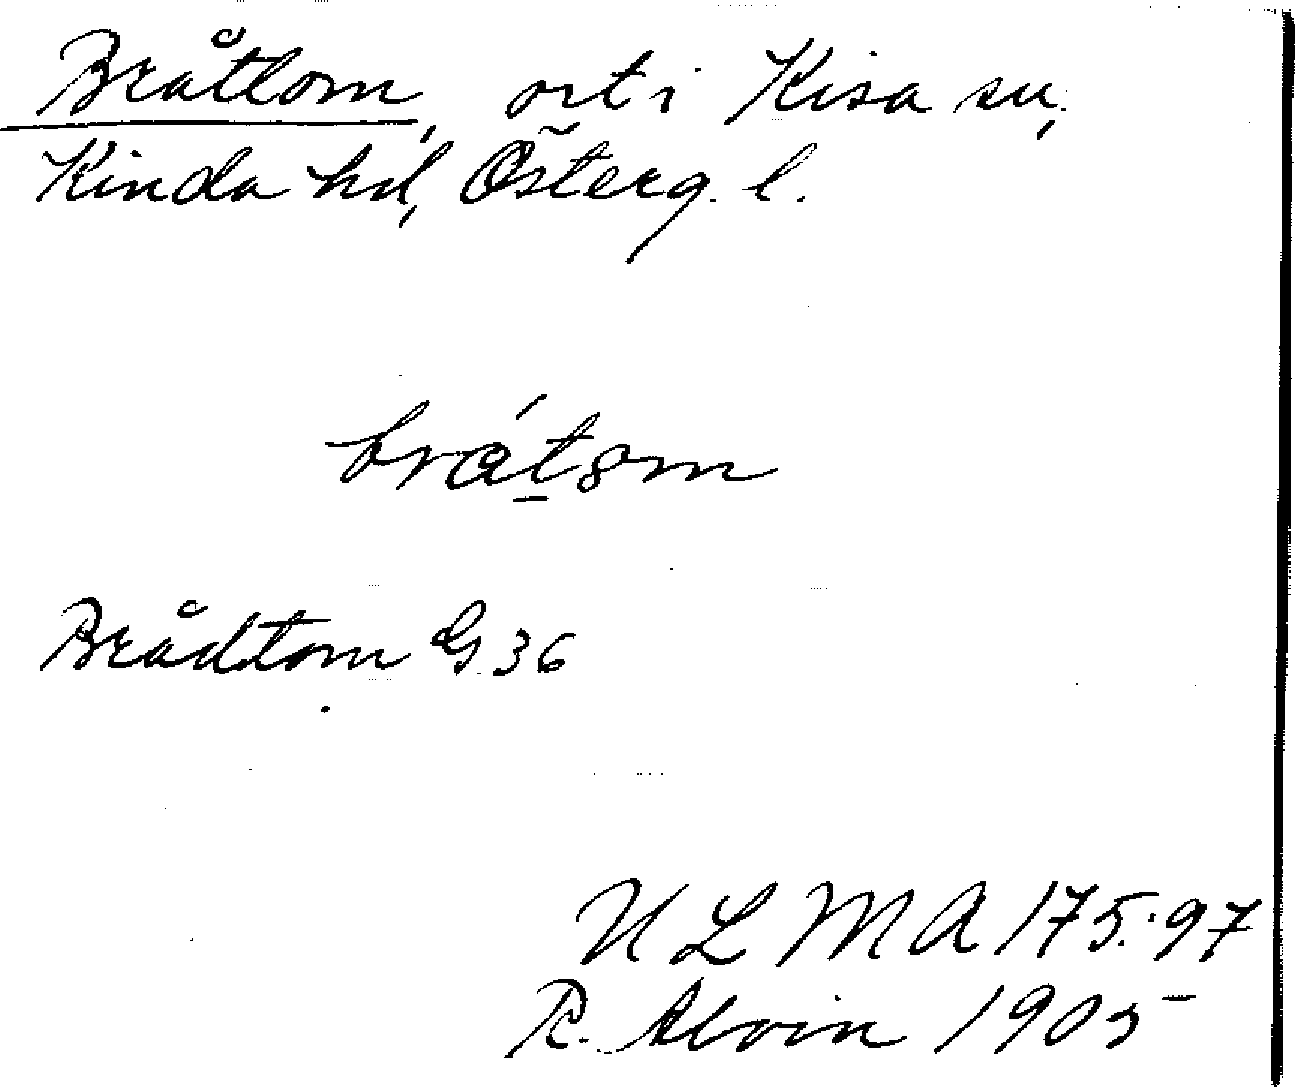 Bråttom, ort i Kisa sn,
Kinda hd, Österg. l.
brát8m
Brådtom G 36
ULMA 175:97
R. Alvin 1905